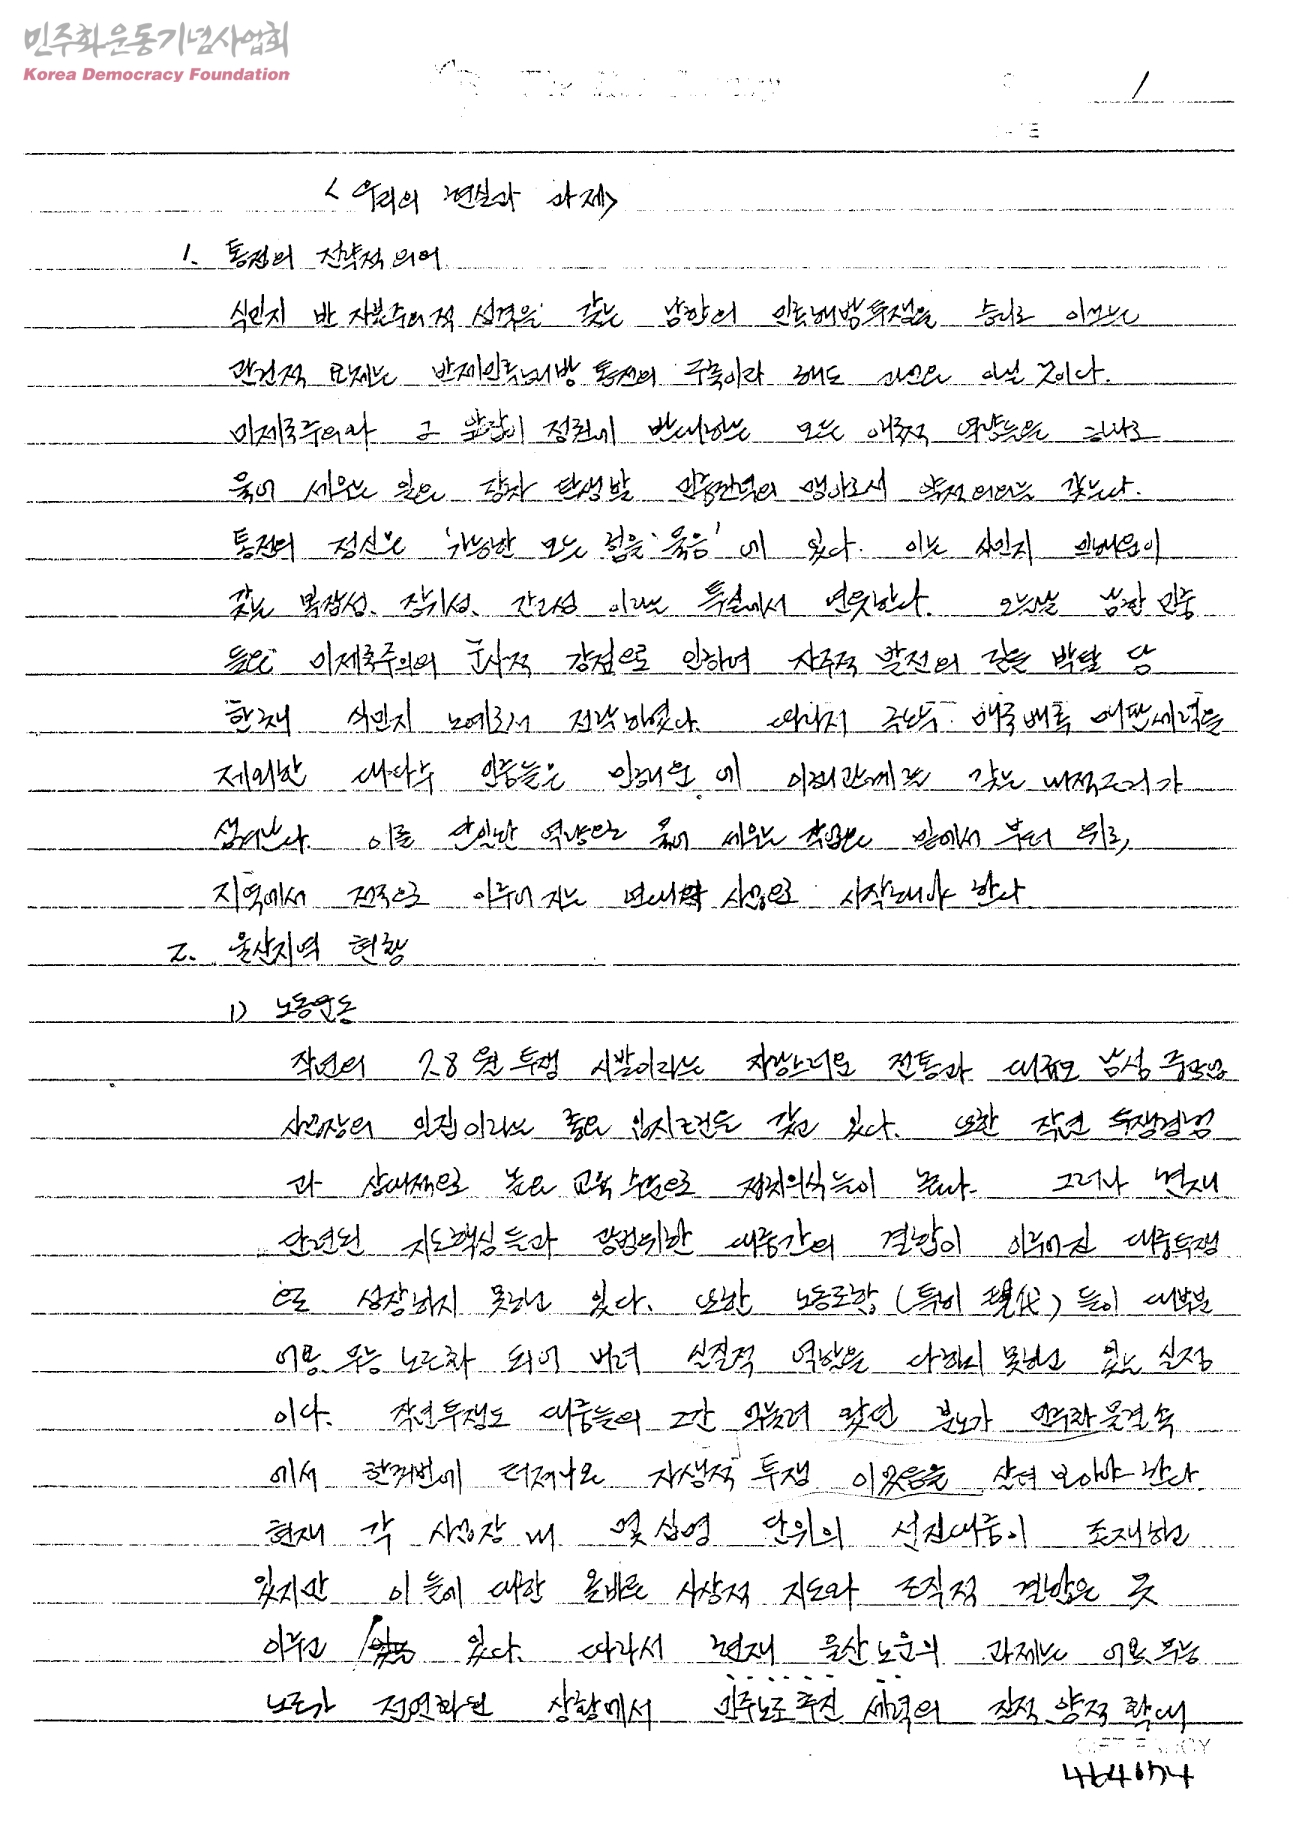 민주화운동기념사업회
Korea Democracy Foundation
1
<우리의 현실과 과제>
1. 통전의 전략적 의의
식민지 반자본주의적 성격을 갖는 남한의 민족해방투쟁을 승리로 이끄는
관건적 문제는 반제민족해방 통전의 구축이라 해도 과언은 아닐 것이다.
미제국주의와 그 앞잡이 정권에 반대하는 모든 애국적 역량들을 하나로
묶어 세우는 일은 장차 탄생할 민중권력의 맹아로서 의의를 갖는다.
통전의 정신은 '가능한 모든 힘을 묶음'에 있다. 이는 식민지 민해운이
갖는 복잡성, 장기성, 간고성 이라는 특질에서 연유한다. 오늘날 남한 민중
들은 미제국주의의 군사적 강점으로 인하여 자주적 발전의 길을 박탈 당
한채 식민지 노예로서 전락하였다. 따라서 극소수 매국 배족 세력을
제외한 대다수 민중들은 민해운에 이해관계를 갖는 내적근거가
생겨난다. 이를 단일한 역량으로 묶어 세우는 작업은 밑에서 부터 위로,
지역에서 전국으로 이루어지는 연대 사업으로 시작돼야 한다
2. 울산지역 현황
1) 노동운동
작년의 7.8월 투쟁 시발이라는 자랑스러운 전통과 대규모 남성 중공업
사업장의 밀집이라는 좋은 입지조건을 갖고 있다. 또한 작년 투쟁경험
과 상대적으로 높은 교육 수준으로 정치의식들이 높다. 그러나 현재
단련된 지도핵심들과 광범위한 대중간의 결합이 이루어진 대중투쟁
으로 성장하지 못하고 있다. 또한 노동조합(특히 現代)들이 대부분
어용, 무능 노조화 되어 버려 실질적 역할을 다하지 못하고 있는 실정
이다. 작년투쟁도 대중들의 그간 억눌려 왔던 분노가 민주화 물결 속
에서 한꺼번에 터져나온 자생적 투쟁이었음을 상기해 보아야 한다.
현재 각 사업장 내 몇십명 단위의 선진대중이 존재하고
있지만 이들에 대한 올바른 사상적 지도와 조직적 결합은 못
이루고 있다. 따라서 현재 울산노운의 과제는 어용, 무능
노조가 전면화된 상황에서 민주노조 추진 세력의 질적, 양적 확대
464674